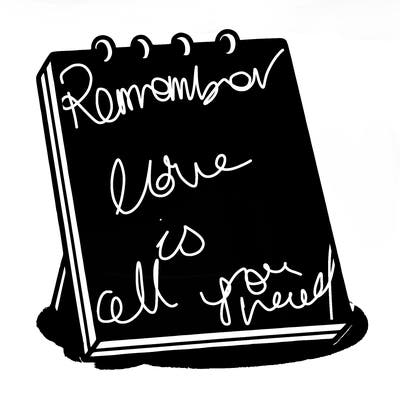 Remember
love
is
all you
need